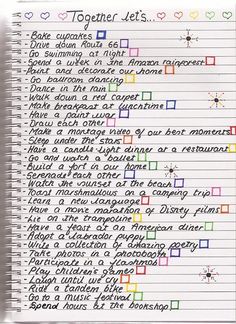 Together let's...
- Bake cupcakes
- Drive down Route 66
- Go swimming at night
- Spend a week in the Amazon rainforest
- Paint and decorate our home
- Go ballroom dancing
- Dance in the rain
- Walk down a red carpet
- Make breakfast at lunchtime
- Have a paint war
- Draw each other
- Make a montage video of our best moments
- Sleep under the stars
- Have a candle-light dinner at a restaurant
- Go and watch a ballet
- Build a fort in our home
- Serenade each other
- Watch the sunset at the beach
- Toast marshmallows on a camping trip
- Learn a new language
- Have a movie marathon of Disney films
- Lie on the trampoline
- Have a feast at an American diner
- Adopt a labrador puppy
- Write a collection of amazing poetry
- Take photos in a photobooth
- Participate in a flashmob
- Play children's games
- Laugh until we cry
- Ride a tandem bike
- Go to a music festival
- Spend hours at the bookshop